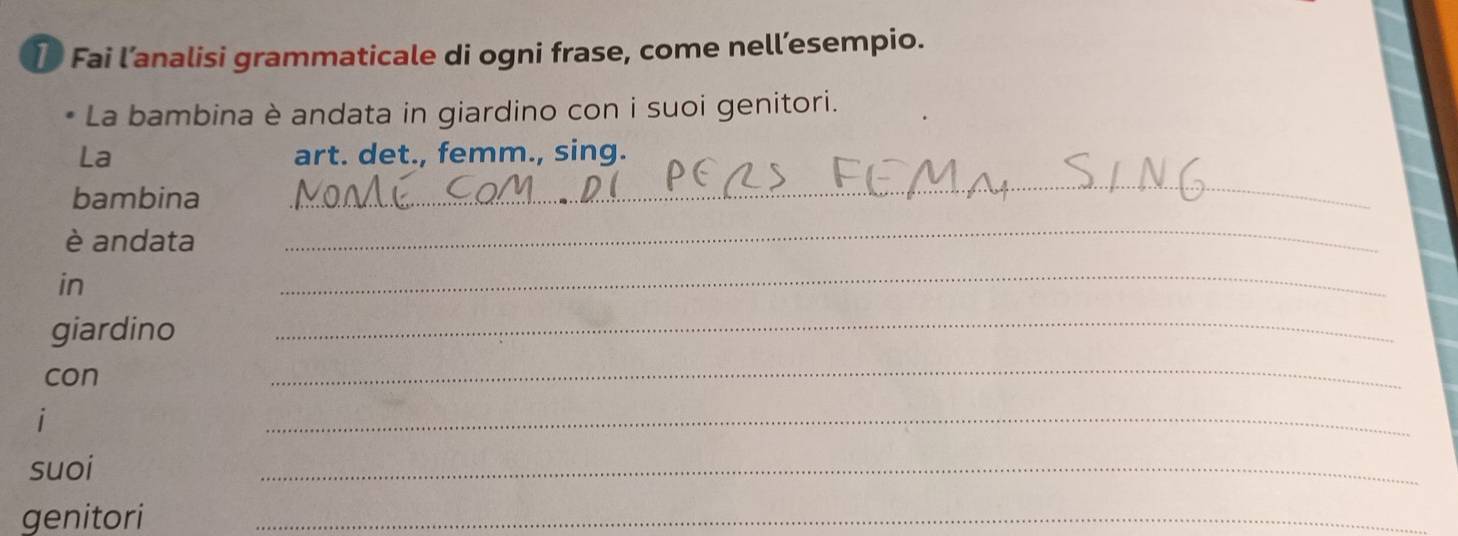 1 Fai l'analisi grammaticale di ogni frase, come nell'esempio.
• La bambina è andata in giardino con i suoi genitori.
La art. det., femm., sing.
bambina NOME COM. DI PERS FEMM SING
è andata
in
giardino
con
i
suoi
genitori